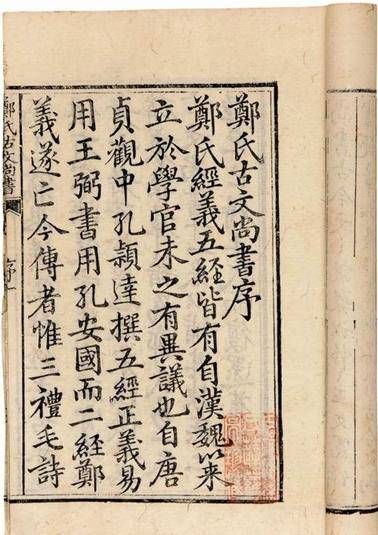 鄭氏古文尚書序
鄭氏經義五經皆有自漢魏以來
立於學官未之有異議也自唐
貞觀中孔穎達撰五經正義易
用王弼書用孔安國而二經鄭
義遂亡今傳者惟三禮毛詩
鄭氏古文尚書
序一